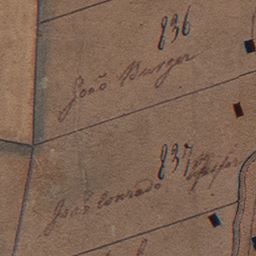 836
João Burger
837
João Conrado